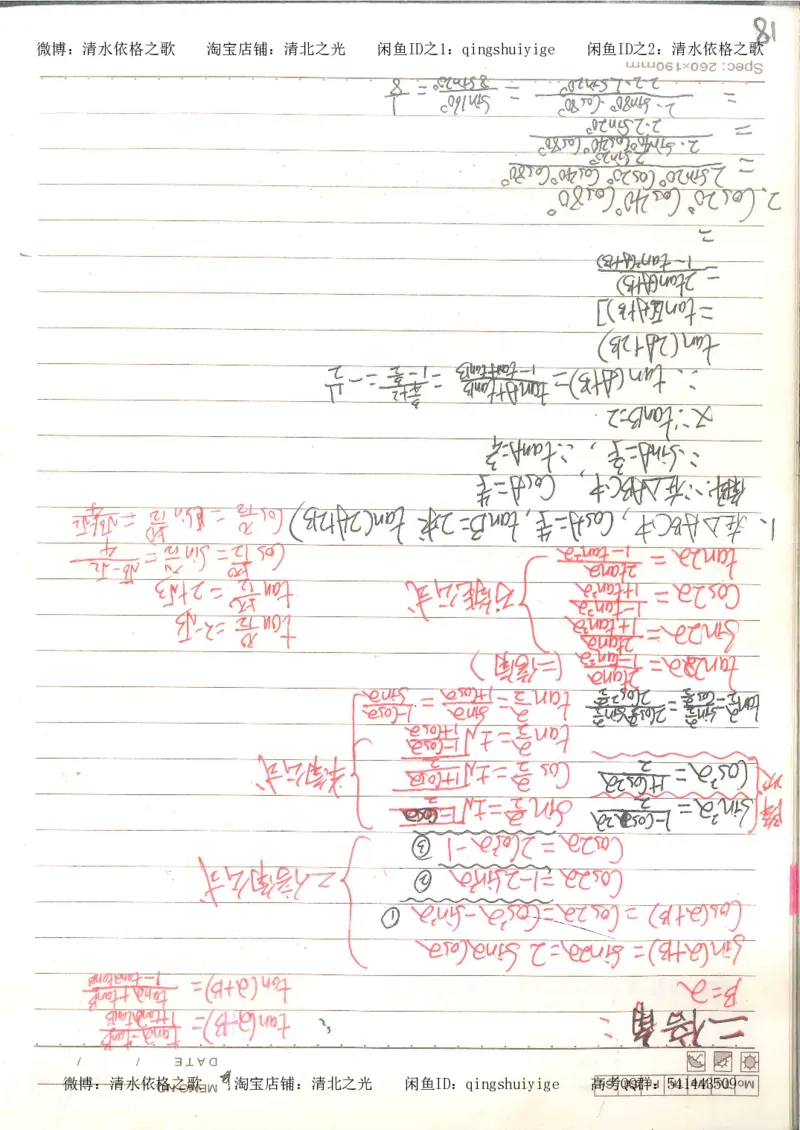 微博：清水依格之歌 淘宝店铺：清北之光 闲鱼ID之1：qingshuiyige 闲鱼ID之2：清水依格之歌
81
二倍角：
β=α
tan(α-β)=(tanα-tanβ)/(1+tanαtanβ)
tan(α+β)=(tanα+tanβ)/(1-tanαtanβ)
sin(α+β)=sin2α=2sinαcosα
cos(α+β)=cos2α=cos²α-sin²α ①
cos2α=1-2sin²α ②
cos2α=2cos²α-1 ③
二倍角公式
降次
sin²α=(1-cos2α)/2
cos²α=(1+cos2α)/2
sin α/2=±√((1-cosα)/2)
cos α/2=±√((1+cosα)/2)
tan α/2=±√((1-cosα)/(1+cosα))
tan α/2=sinα/(1+cosα)=(1-cosα)/sinα
半角公式
tan2α=2tanα/(1-tan²α) (二倍角)
sin2α=2tanα/(1+tan²α)
cos2α=(1-tan²α)/(1+tan²α)
tan2α=2tanα/(1-tan²α)
万能公式
tan π/12=2-√3
tan 5π/12=2+√3
cos 5π/12=sin π/12=(√6-√2)/4
cos π/12=sin 5π/12=(√6+√2)/4
1. 在△ABC中，cosA=4/5，tanB=2求 tan(2A+2B)
解：∵在△ABC中，cosA=4/5
∴sinA=3/5，∴tanA=3/4
又∵tanB=2
∴tan(A+B)=(tanA+tanB)/(1-tanAtanB)=(3/4+2)/(1-3/2)=-11/2
tan(2A+2B)
=tan[2(A+B)]
=2tan(A+B)/(1-tan²(A+B))
=
2. cos20°cos40°cos80°
=2sin20°cos20°cos40°cos80°/2sin20°
=2·sin40°cos40°cos80°/2·2sin20°
=2·sin80°·cos80°/2·2·2sin20°=sin160°/8sin20°=1/8
Spec: 260×190mm
DATE / /
微博：清水依格之歌 淘宝店铺：清北之光 闲鱼ID：qingshuiyige 高考QQ群：541443509